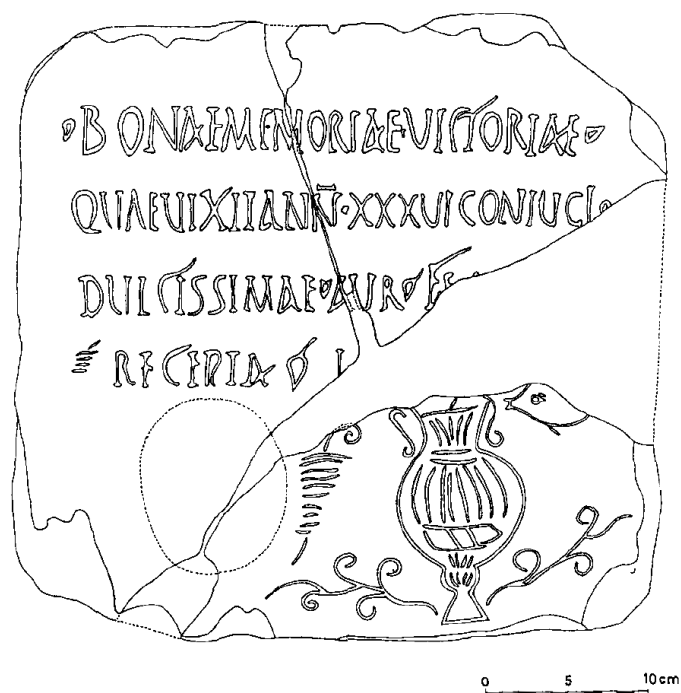 BONAE MEMORIAE UICTORIAE
QUAE UIXIT ANN̄ · XXXUI CONIUGI
DULCISSIMAE AUR
RECEPTA
0 5 10 cm